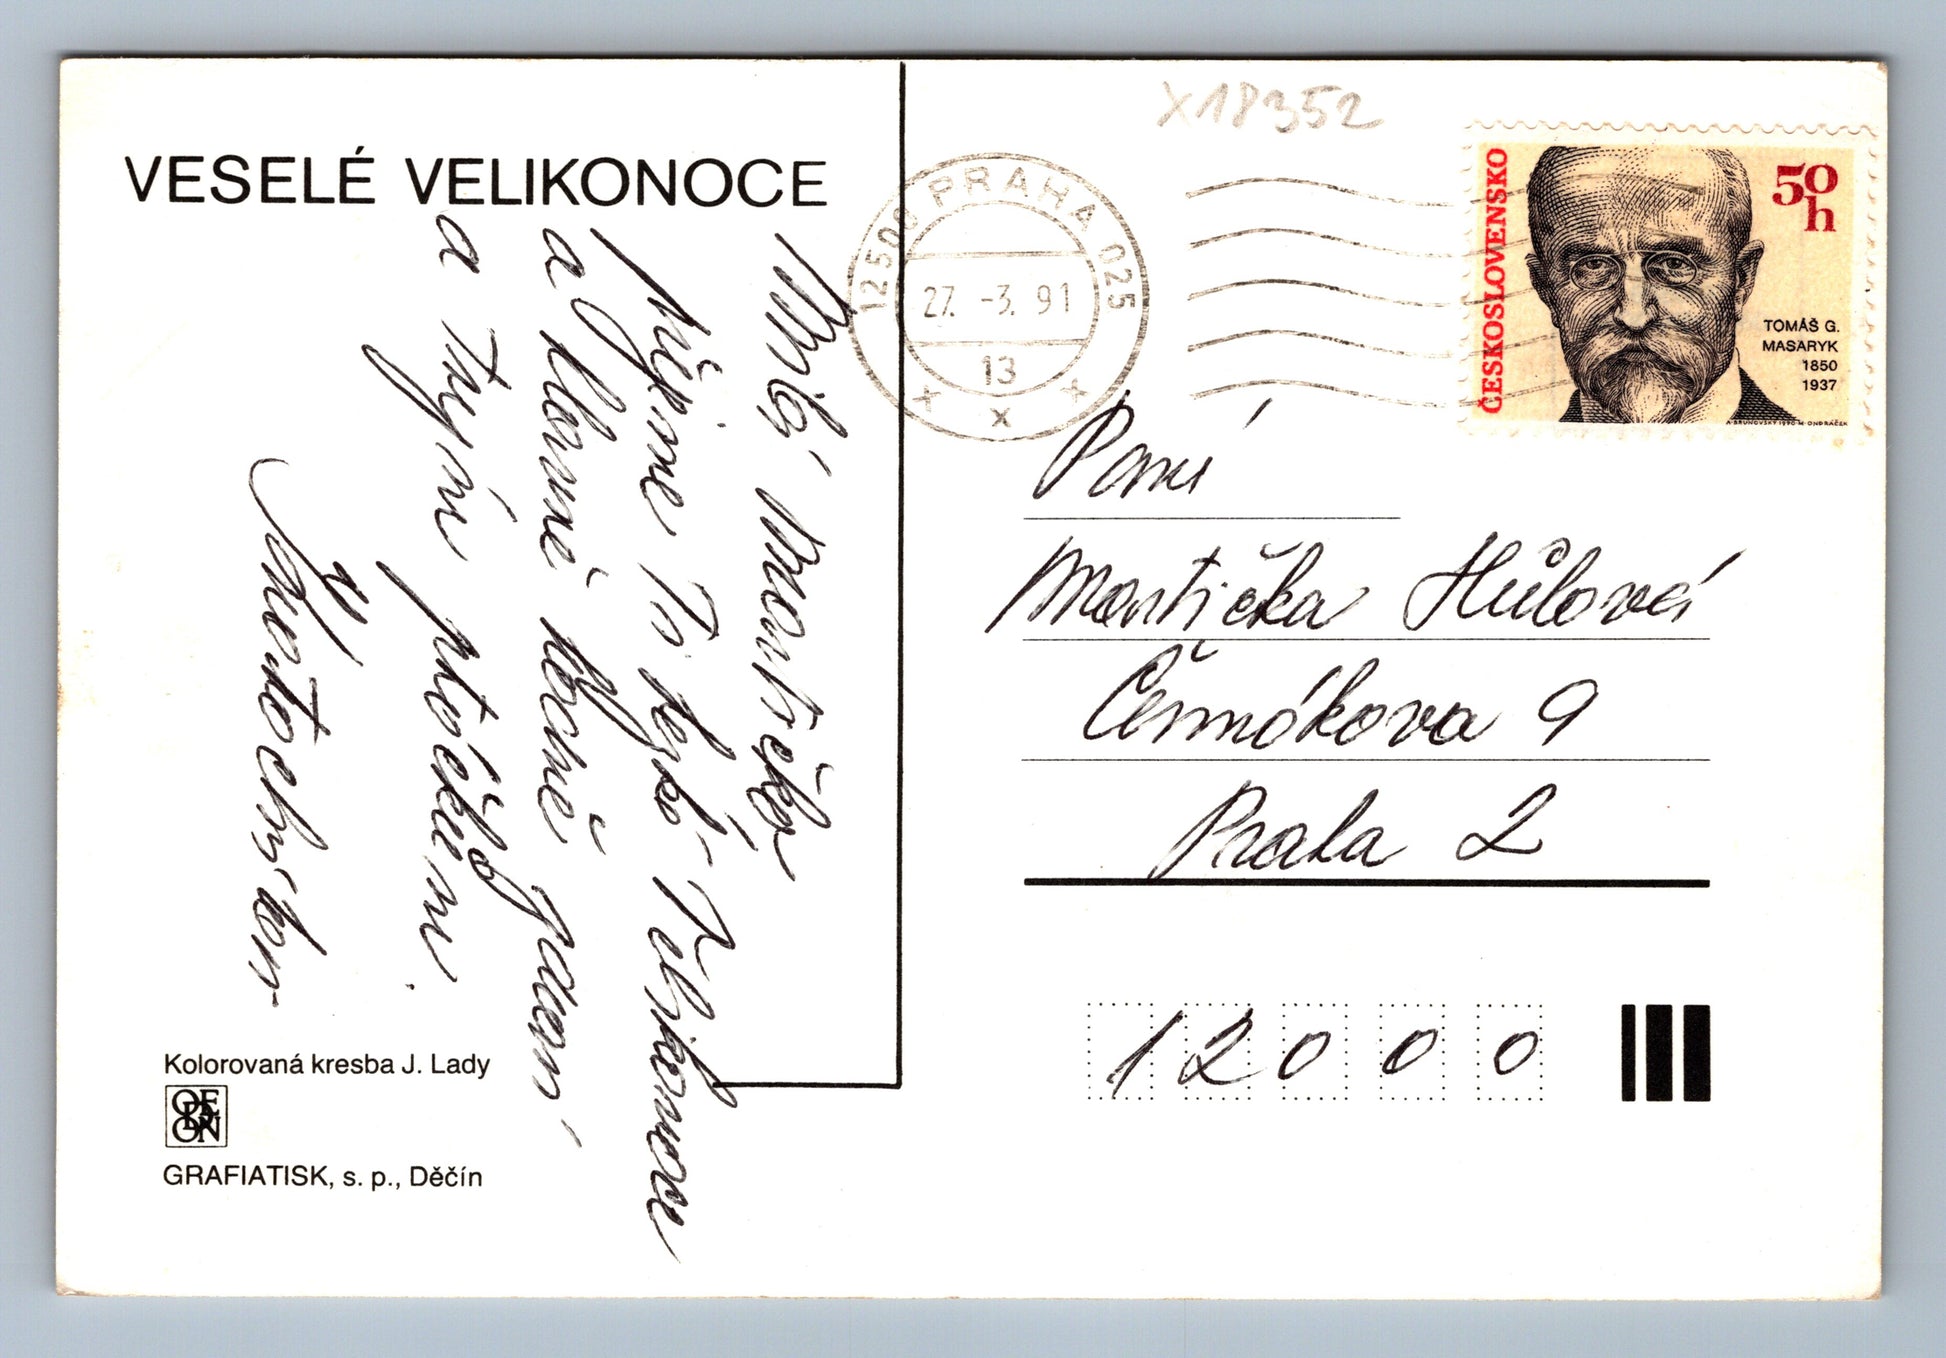 X18352
VESELÉ VELIKONOCE
Milá Martičko,
přejeme Ti hezké Velikonoce
a hlavně hodně zdraví
a tvým ptáčkům.
Kolorovaná kresba J. Lady
ODEON
GRAFIATISK, s. p., Děčín
125 00 PRAHA 025
27. -3. 91
13
x x x
ČESKOSLOVENSKO
50
h
TOMÁŠ G.
MASARYK
1850
1937
A. BRUNOVSKÝ 1990 M. ONDRÁČEK
Paní
Martička Hůlová
Čermákova 9
Praha 2
12000